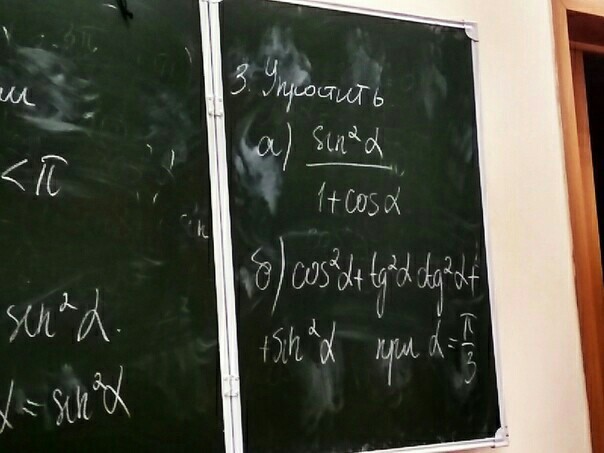 ии
< π
sin²α.
α = sin²α
3. Упростить
а) sin²α
1 + cosα
б) cos²α + tg²α ctg²α +
+ sin²α при α = π/3